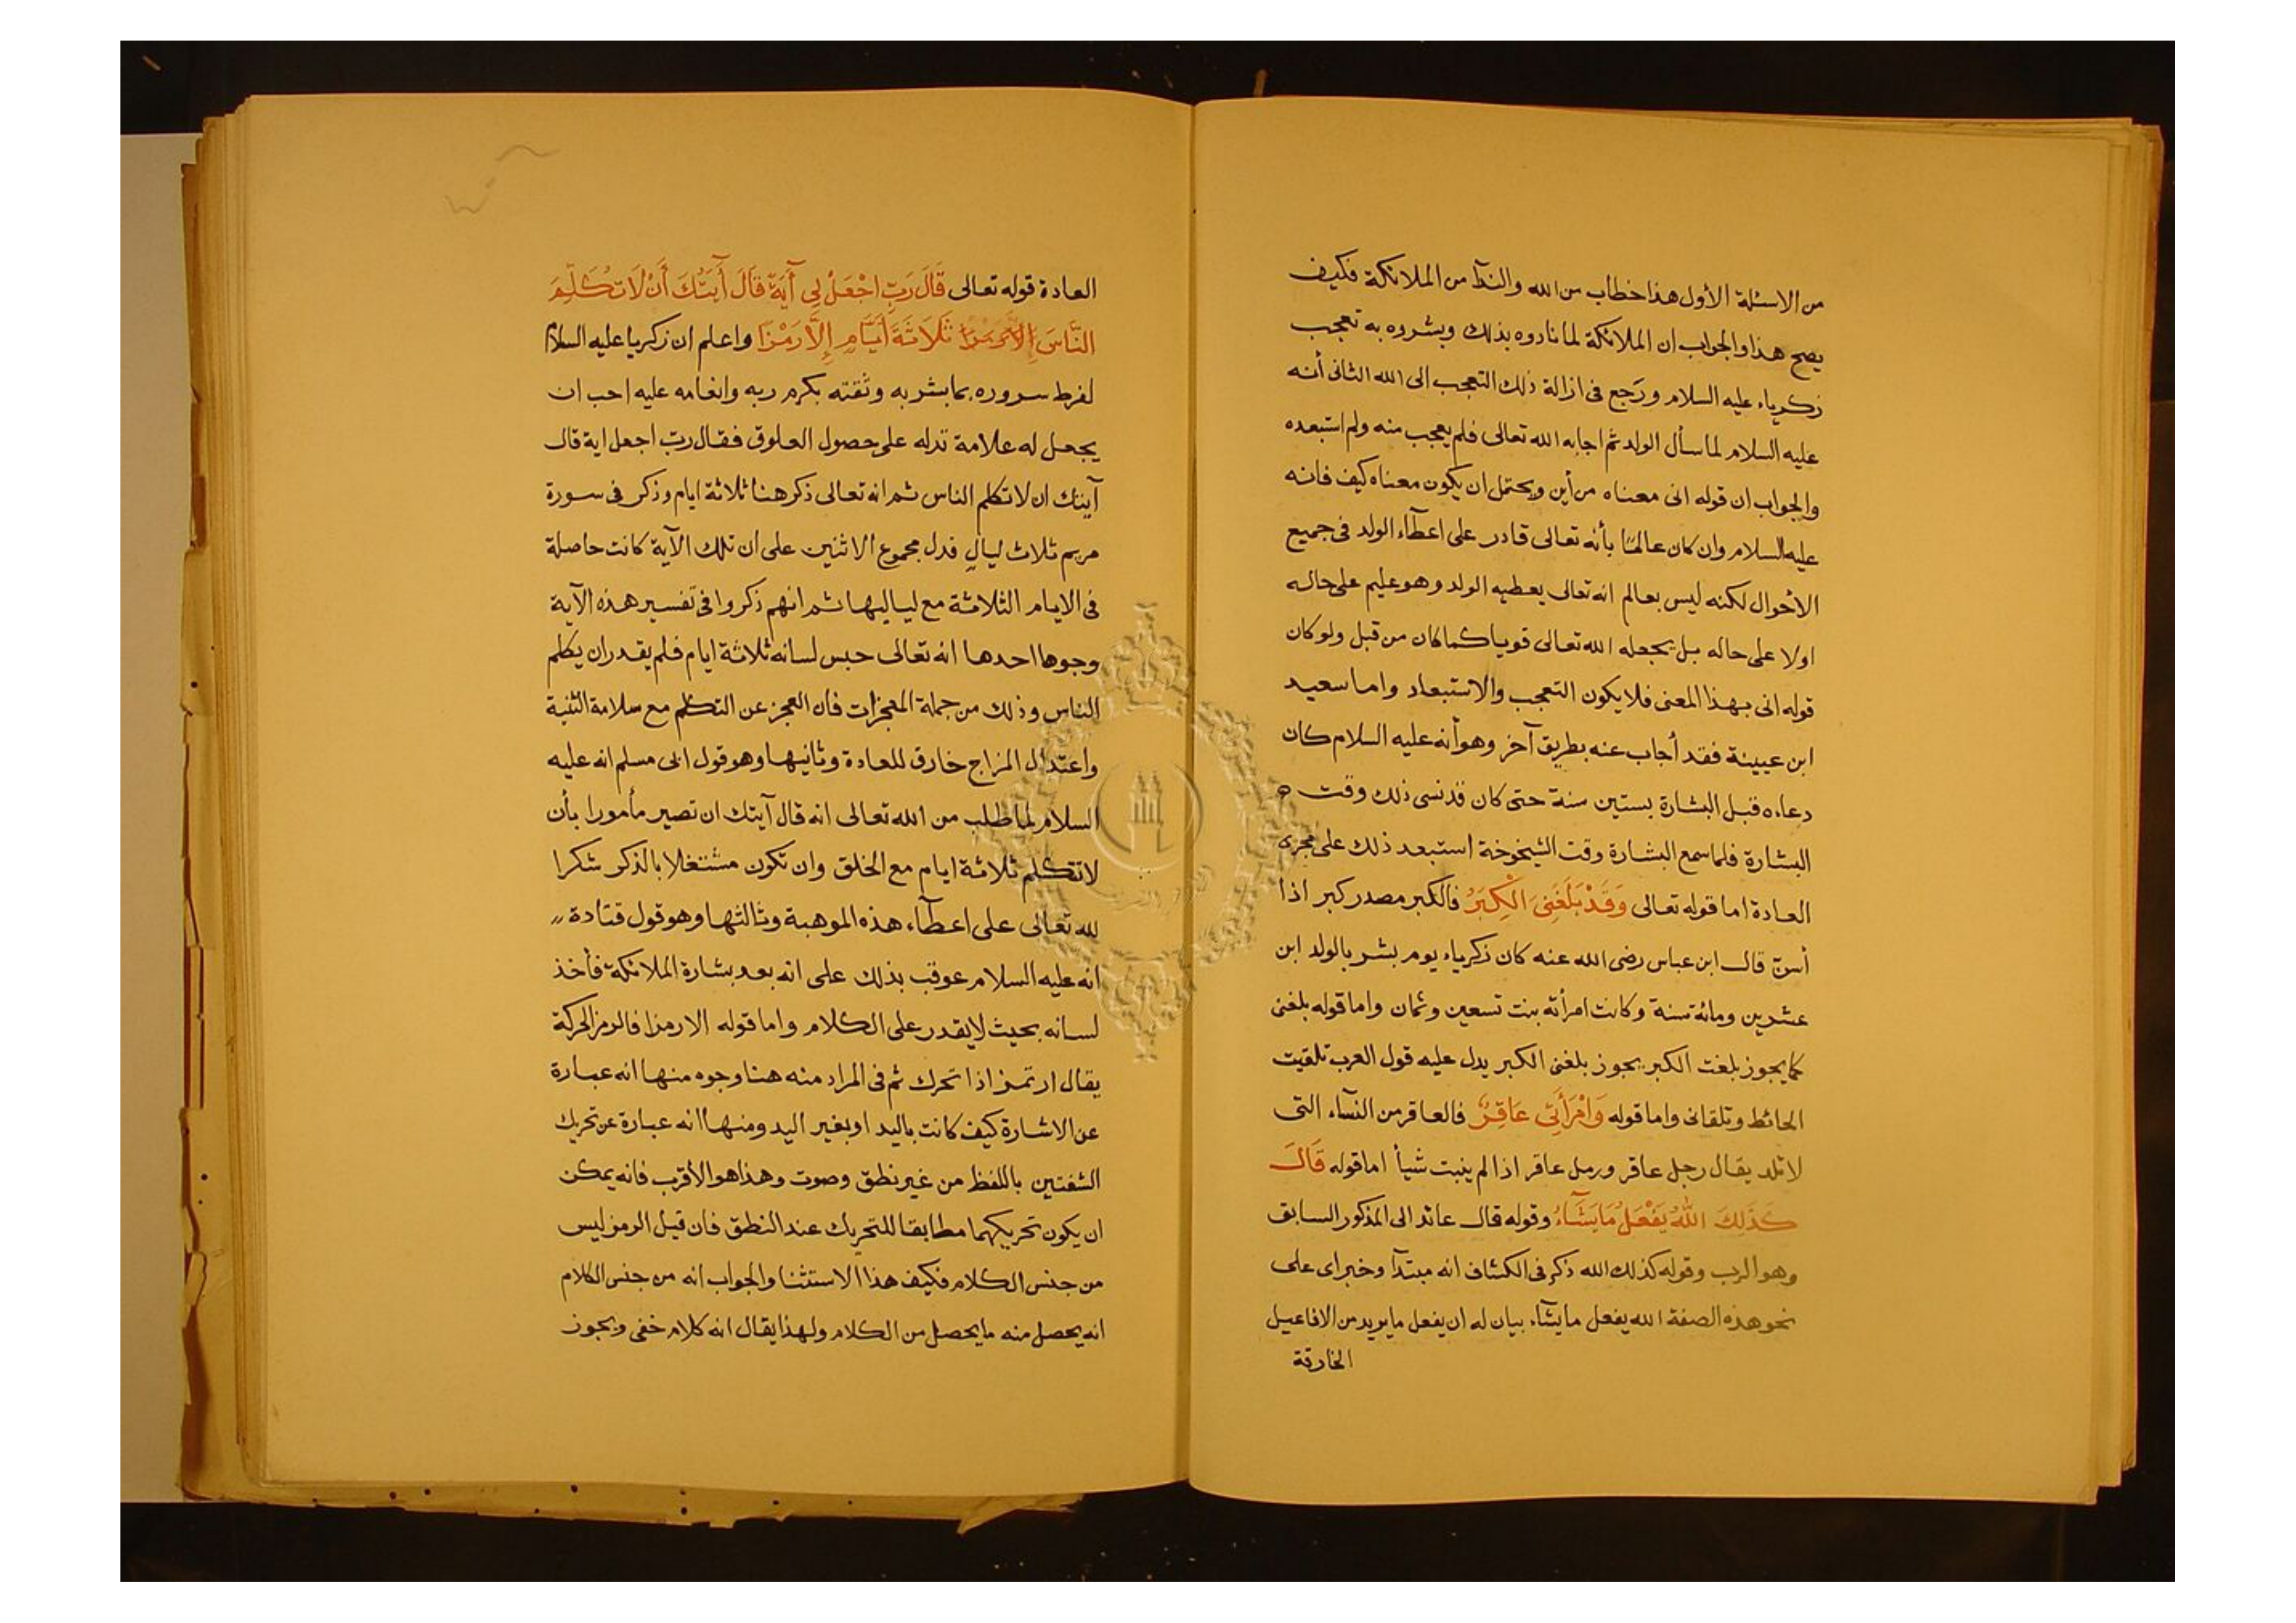 من الاسئلة الأول هذا خطاب من الله والندآ من الملائكة فكيف
يصح هذا والجواب ان الملائكة لما نادوه بذلك وبشروه به تعجب
زكرياء عليه السلام ورَجع فى ازالة ذلك التعجب الى الله الثانى أنه
عليه السلام لما سأل الولد ثم اجابه الله تعالى فلم يعجب منه ولم استبعده
والجواب ان قوله انى معناه من أين ويحتمل ان يكون معناه كيف فانه
عليه السلام وان كان عالمًا بأنه تعالى قادر على اعطآء الولد فى جميع
الأحوال لكنه ليس بعالم انه تعالى يعطيه الولد وهو عليم على حاله
اولا على حاله بل يجعله الله تعالى قويا كما كان من قبل ولو كان
قوله انى بهذا المعنى فلا يكون التعجب والاستبعاد واما سعيد
ابن عيينة فقد أجاب عنه بطريق آخر وهو أنه عليه السلام كان
دعاءه قبل البشارة بستين سنة حتى كان قد نسى ذلك وقت
البشارة فلما سمع البشارة وقت الشيخوخة استبعد ذلك على مجرى
العادة اما قوله تعالى وَقَدْ بَلَغَنِىَ الْكِبَرُ فالكبر مصدر كبر اذا
أسنّ قال ابن عباس رضى الله عنه كان زكرياء يوم بشر بالولد ابن
عشرين ومائة سنة وكانت امرأته بنت تسعين وثمان واما قوله بلغنى
كما يجوز بلغت الكبر يجوز بلغنى الكبر يدل عليه قول العرب تلقيت
الحائط وتلقانى واما قوله وَامْرَأَتِى عَاقِرٌ فالعاقر من النسآء التى
لا تلد يقال رجل عاقر ورمل عاقر اذا لم ينبت شيأ اما قوله قَالَ
كَذَلِكَ اللهُ يَفْعَلُ مَا يَشَآءُ وقوله قال عائد الى المذكور السابق
وهو الرب وقوله كذلك الله ذكر فى الكشاف انه مبتدآ وخبر اى على
نحو هذه الصفة الله يفعل ما يشآء بيان له ان يفعل ما يريد من الافاعيل
الخارقة
العادة قوله تعالى قَالَ رَبِّ اجْعَلْ لِى آيَةً قَالَ آيَتُكَ أَنْ لَا تُكَلِّمَ
النَّاسَ ثَلَاثَةَ أَيَّامٍ إِلَّا رَمْزًا واعلم ان زكريا عليه السلام
لفرط سروره بما بشر به وثقته بكرم ربه وانعامه عليه احب ان
يجعل له علامة تدله على حصول العلوق فقال ربّ اجعل اية قال
آيتك ان لا تكلم الناس ثم انه تعالى ذكر هنا ثلاثة ايام وذكر فى سورة
مريم ثلاث ليالٍ فدل مجموع الاثنين على ان تلك الآية كانت حاصلة
فى الايام الثلاثة مع لياليها ثم انهم ذكروا فى تفسير هذه الآية
وجوها احدها انه تعالى حبس لسانه ثلاثة ايام فلم يقدر ان يكلم
الناس وذلك من جملة المعجزات فان العجز عن التكلم مع سلامة البنية
واعتدال المزاج خارق للعادة وثانيها وهو قول ابى مسلم انه عليه
السلام لما طلب من الله تعالى انه قال آيتك ان تصير مأمورا بأن
لا تتكلم ثلاثة ايام مع الخلق وان تكون مشتغلا بالذكر شكرا
لله تعالى على اعطآء هذه الموهبة وثالثها وهو قول قتادة
انه عليه السلام عوقب بذلك على انه بعد بشارة الملائكة فأخذ
لسانه بحيث لا يقدر على الكلام واما قوله الا رمزا فالرمز الحركة
يقال ارتمز اذا تحرك ثم فى المراد منه هنا وجوه منها انه عبارة
عن الاشارة كيف كانت باليد او بغير اليد ومنها انه عبارة عن تحريك
الشفتين باللفظ من غير نطق وصوت وهذا هو الأقرب فانه يمكن
ان يكون تحريكهما مطابقا للتحريك عند النطق فان قيل الرمز ليس
من جنس الكلام فكيف هذا الاستثنا والجواب انه من جنس الكلام
انه يحصل منه ما يحصل من الكلام ولهذا يقال انه كلام خفى ويجوز